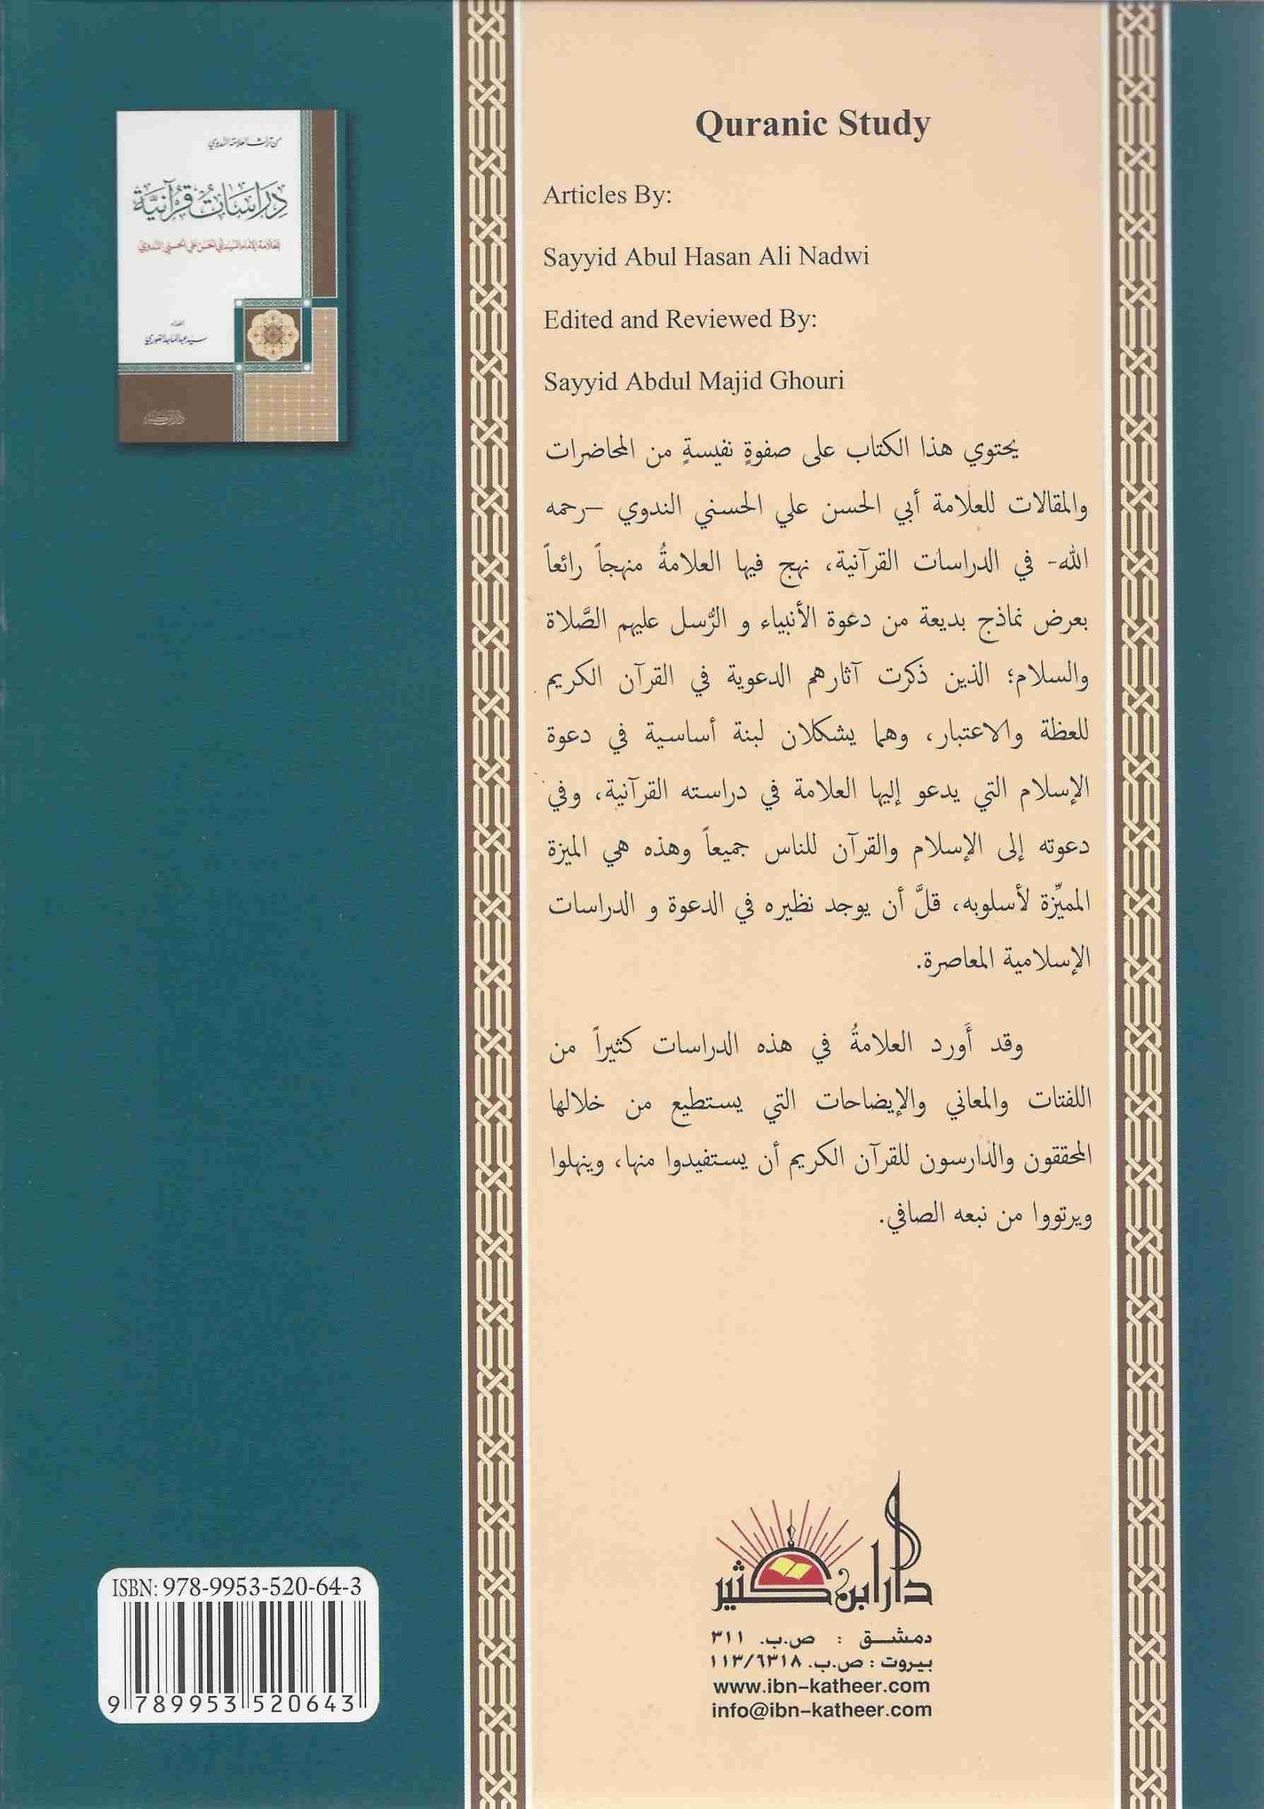 من تراث العلامة الندوي
دِرَاسَاتٌ قُرْآنِيَّة
للعلامة الإمام السيد أبي الحسن علي الحسني الندوي
إعداد
سيد عبد الماجد الغوري
دار ابن كثير
Quranic Study
Articles By:
Sayyid Abul Hasan Ali Nadwi
Edited and Reviewed By:
Sayyid Abdul Majid Ghouri
يحتوي هذا الكتاب على صفوةٍ نفيسةٍ من المحاضرات
والمقالات للعلامة أبي الحسن علي الحسني الندوي –رحمه
الله- في الدراسات القرآنية، نهج فيها العلامةُ منهجاً رائعاً
بعرض نماذج بديعة من دعوة الأنبياء و الرُّسل عليهم الصَّلاة
والسلام؛ الذين ذكرت آثارهم الدعوية في القرآن الكريم
للعظة والاعتبار، وهما يشكلان لبنة أساسية في دعوة
الإسلام التي يدعو إليها العلامة في دراسته القرآنية، وفي
دعوته إلى الإسلام والقرآن للناس جميعاً وهذه هي الميزة
المميِّزة لأسلوبه، قلَّ أن يوجد نظيره في الدعوة و الدراسات
الإسلامية المعاصرة.
وقد أَورد العلامةُ في هذه الدراسات كثيراً من
اللفتات والمعاني والإيضاحات التي يستطيع من خلالها
المحققون والدارسون للقرآن الكريم أن يستفيدوا منها، وينهلوا
ويرتووا من نبعه الصافي.
دار ابن كثير
دمشق : ص.ب. ٣١١
بيروت : ص.ب. ١١٣/٦٣١٨
www.ibn-katheer.com
info@ibn-katheer.com
ISBN: 978-9953-520-64-3
9 789953 520643